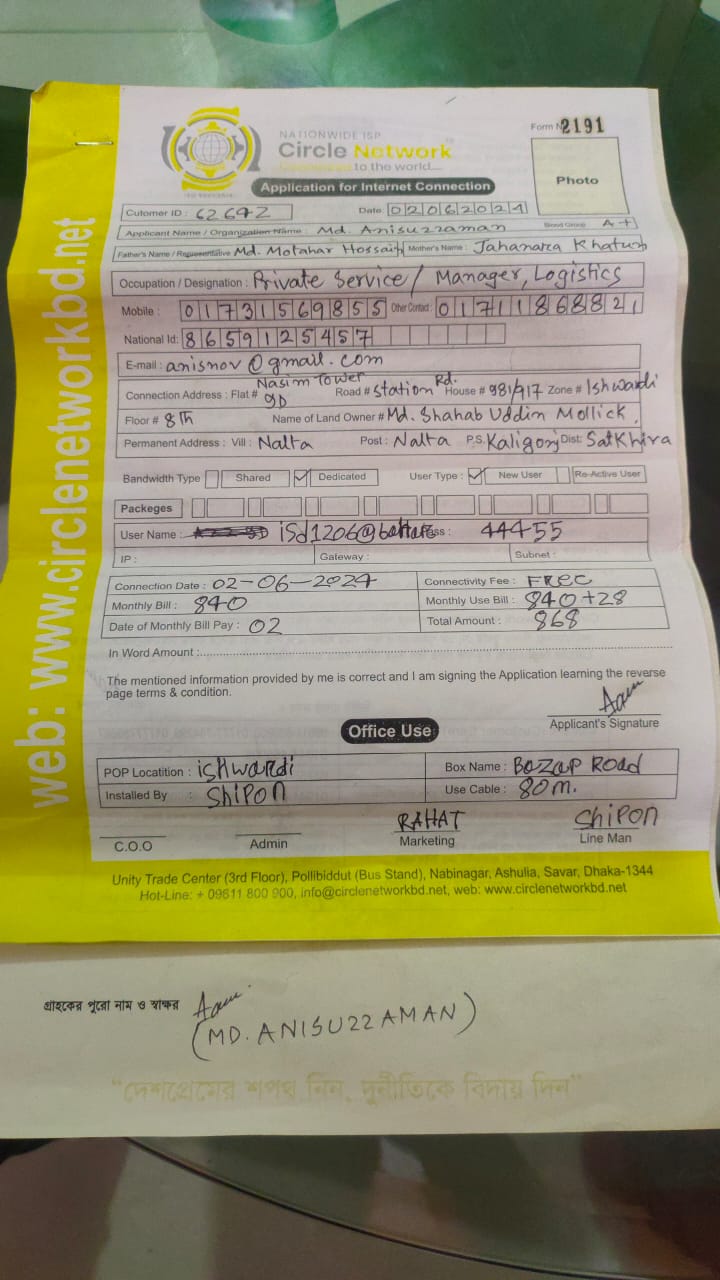 NATIONWIDE ISP
Form N 2191
Circle Network
to the world....
Photo
Application for Internet Connection
Cutomer ID : 62642 Date: 02062024
Applicant Name / Organization Name : Md. Anisuzzaman Blood Group A+
Father's Name / Representative Md. Motahar Hossain Mother's Name : Jahanara Khatun
Occupation / Designation : Private Service / Manager, Logistics
Mobile : 01731569855 Other Contact : 01711868821
National Id: 8659125457
E-mail : anisnov@gmail.com
Connection Address : Flat # Nasim Tower 9D Road # Station Rd. House # 981/917 Zone # Ishwardi
Floor # 8th Name of Land Owner # Md. Shahab Uddin Mollick
Permanent Address : Vill : Nalta Post : Nalta P.S. Kaligonj Dist: Satkhira
Bandwidth Type Shared Dedicated User Type : New User Re-Active User
Packeges
User Name : 44455
IP : Gateway : Subnet :
Connection Date : 02-06-2024 Connectivity Fee : Free
Monthly Bill : 840 Monthly Use Bill : 840+28
Date of Monthly Bill Pay : 02 Total Amount : 868
In Word Amount :
The mentioned information provided by me is correct and I am signing the Application learning the reverse
page terms & condition.
Applicant's Signature
Office Use
POP Locatition : ishwardi Box Name : Bazar Road
Installed By : Shipon Use Cable : 80m.
RAHAT Shipon
C.O.O Admin Marketing Line Man
Unity Trade Center (3rd Floor), Pollibiddut (Bus Stand), Nabinagar, Ashulia, Savar, Dhaka-1344
Hot-Line: + 09611 800 900, info@circlenetworkbd.net, web: www.circlenetworkbd.net
web: www.circlenetworkbd.net
গ্রাহকের পুরো নাম ও স্বাক্ষর
(MD. ANISUZZAMAN)
“দেশপ্রেমের শপথ নিন, দুর্নীতিকে বিদায় দিন”